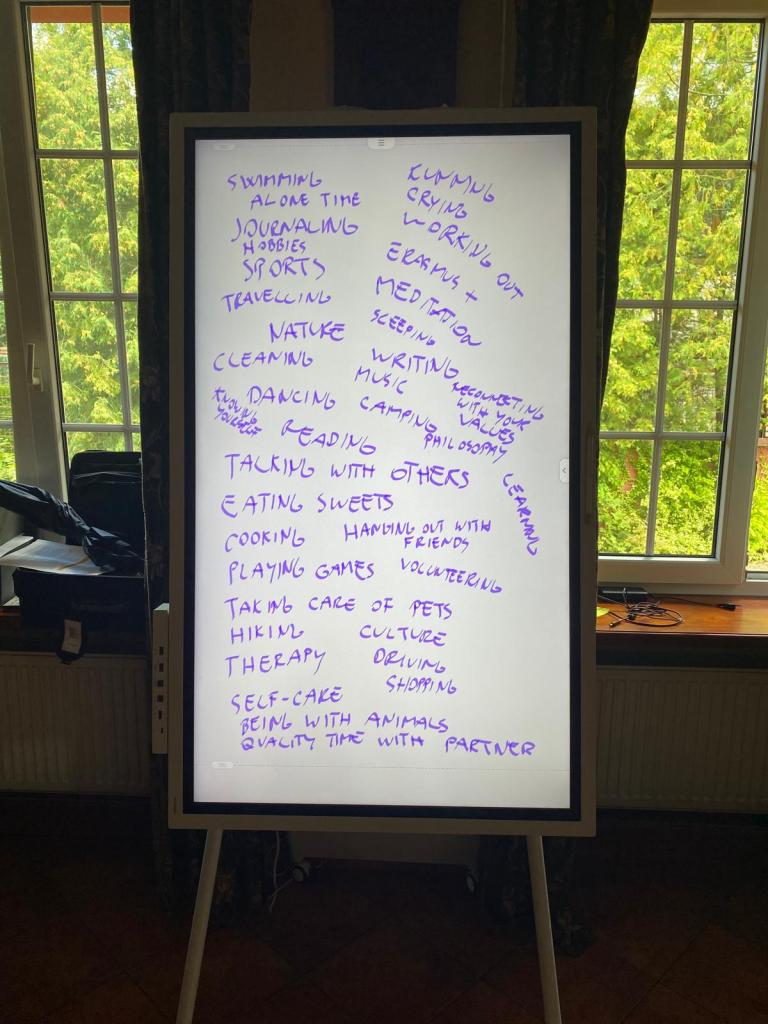 SWIMMING
ALONE TIME
JOURNALING
HOBBIES
SPORTS
TRAVELLING
NATURE
CLEANING
DANCING
KNOWING
YOURSELF
READING
RUNNING
CRYING
WORKING OUT
ERASMUS +
MEDITATION
SLEEPING
WRITING
MUSIC
CAMPING
RECONNECTING
WITH YOUR
VALUES
PHILOSOPHY
TALKING WITH OTHERS
LEARNING
EATING SWEETS
COOKING
HANGING OUT WITH
FRIENDS
PLAYING GAMES
VOLUNTEERING
TAKING CARE OF PETS
HIKING
CULTURE
THERAPY
DRIVING
SHOPPING
SELF-CARE
BEING WITH ANIMALS
QUALITY TIME WITH PARTNER